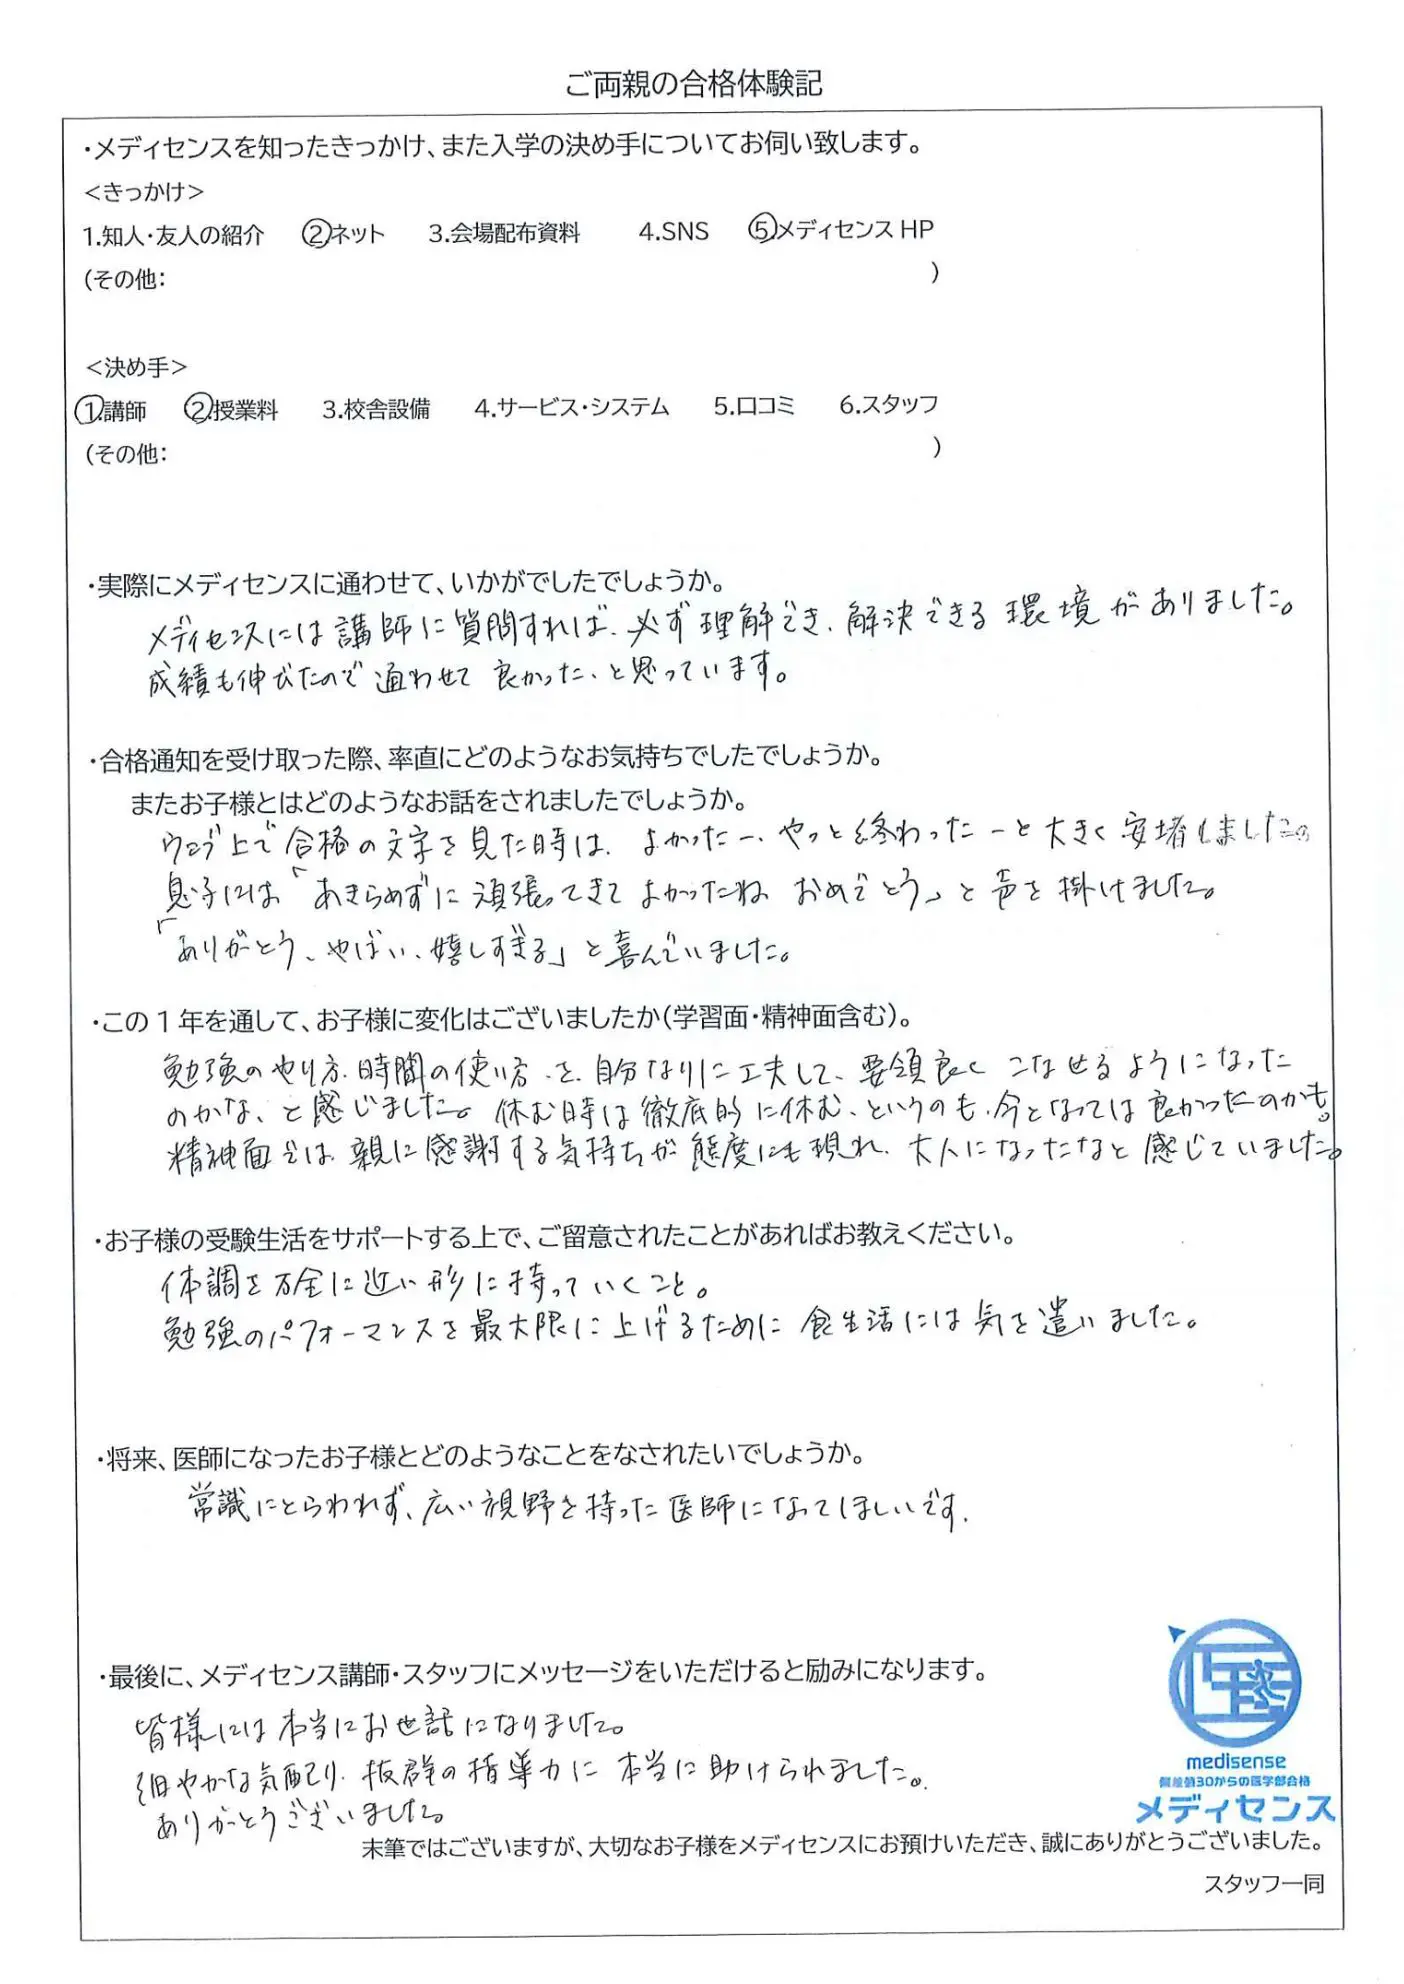 ご両親の合格体験記
・メディセンスを知ったきっかけ、また入学の決め手についてお伺い致します。
＜きっかけ＞
1.知人・友人の紹介 ②ネット 3.会場配布資料 4.SNS ⑤メディセンスHP
(その他: )
＜決め手＞
①.講師 ②授業料 3.校舎設備 4.サービス・システム 5.口コミ 6.スタッフ
(その他: )
・実際にメディセンスに通わせて、いかがでしたでしょうか。
メディセンスには講師に質問すれば、必ず理解でき、解決できる環境がありました。
成績も伸びたので通わせて良かった、と思っています。
・合格通知を受け取った際、率直にどのようなお気持ちでしたでしょうか。
またお子様とはどのようなお話をされましたでしょうか。
ウェブ上で合格の文字を見た時は、よかったー、やっと終わったーと大きく安堵しました。
息子には「あきらめずに頑張ってきてよかったね おめでとう」と声を掛けました。
「ありがとう、やばい、嬉しすぎる」と喜んでいました。
・この1年を通して、お子様に変化はございましたか(学習面・精神面含む)。
勉強のやり方、時間の使い方、を、自分なりに工夫して、要領良くこなせるようになった
のかな、と感じました。休む時は徹底的に休む、というのも、今となっては良かったのかも。
精神面では、親に感謝する気持ちが態度にも現れ、大人になったなと感じていました。
・お子様の受験生活をサポートする上で、ご留意されたことがあればお教えください。
体調を万全に近い形に持っていくこと。
勉強のパフォーマンスを最大限に上げるために食生活には気を遣いました。
・将来、医師になったお子様とどのようなことをなされたいでしょうか。
常識にとらわれず、広い視野を持った医師になってほしいです.
・最後に、メディセンス講師・スタッフにメッセージをいただけると励みになります。
皆様には本当にお世話になりました。
細やかな気配り、抜群の指導力に本当に助けられました。
ありがとうございました。
medisense
偏差値30からの医学部合格
メディセンス
末筆ではございますが、大切なお子様をメディセンスにお預けいただき、誠にありがとうございました。
スタッフ一同